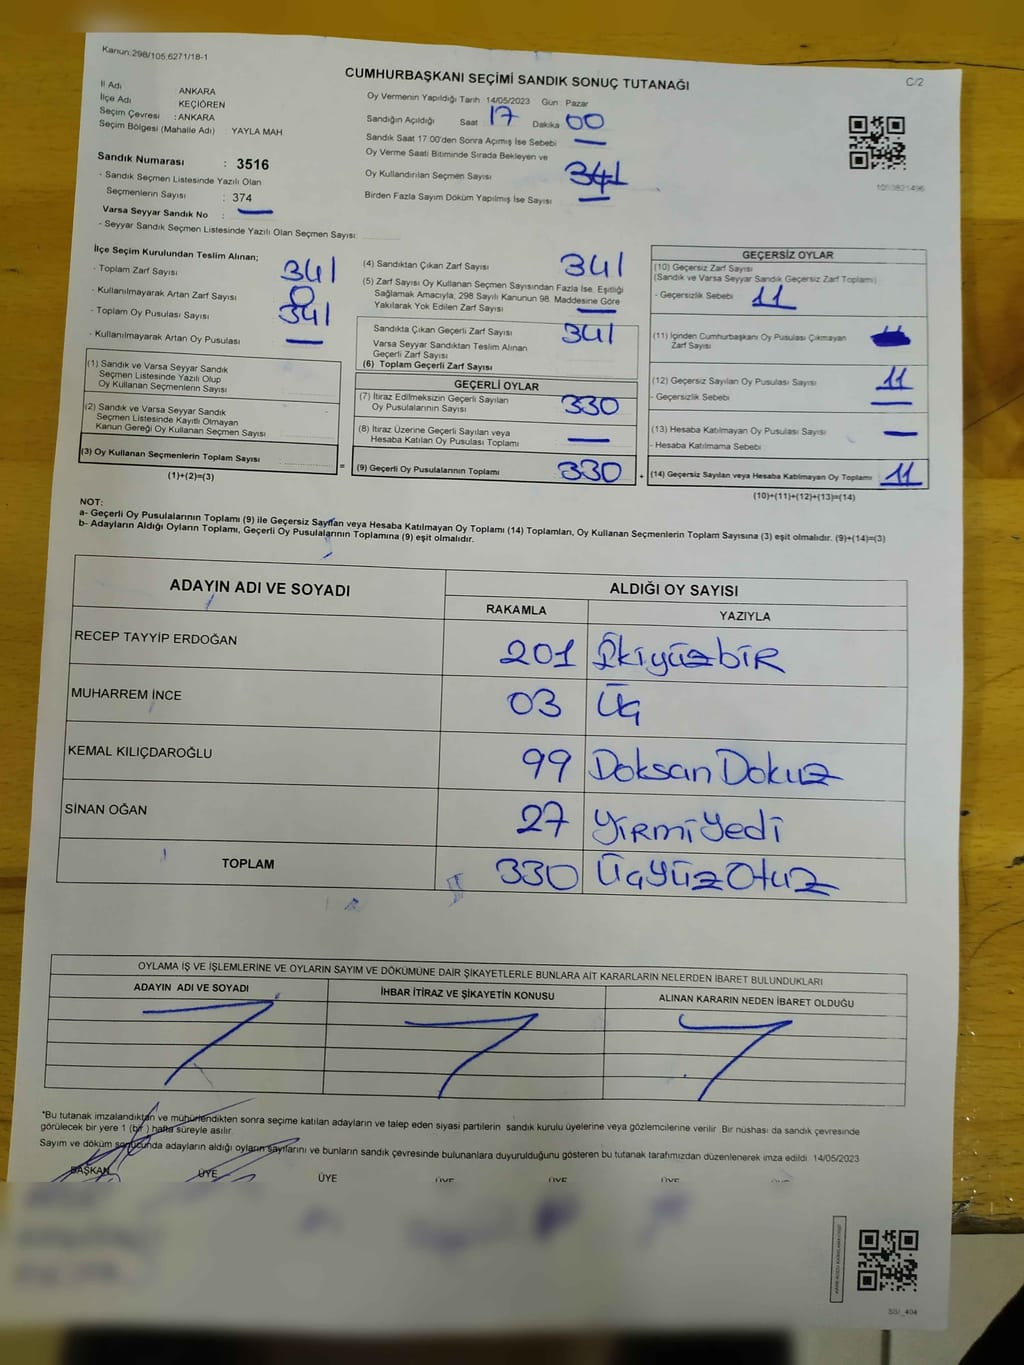 Kanun:298/105;6271/18-1
C/2
CUMHURBAŞKANI SEÇİMİ SANDIK SONUÇ TUTANAĞI
İl Adı ANKARA
İlçe Adı KEÇİÖREN
Seçim Çevresi : ANKARA
Seçim Bölgesi (Mahalle Adı) : YAYLA MAH
Sandık Numarası : 3516
- Sandık Seçmen Listesinde Yazılı Olan
Seçmenlerin Sayısı : 374
Varsa Seyyar Sandık No : —
- Seyyar Sandık Seçmen Listesinde Yazılı Olan Seçmen Sayısı
Oy Vermenin Yapıldığı Tarih 14/05/2023 Gün Pazar
Sandığın Açıldığı Saat 17 Dakika 00
Sandık Saat 17:00'den Sonra Açımış İse Sebebi —
Oy Verme Saati Bitiminde Sırada Bekleyen ve
Oy Kullandırılan Seçmen Sayısı 341
Birden Fazla Sayım Döküm Yapılmış İse Sayısı —
1053821496
İlçe Seçim Kurulundan Teslim Alınan;
- Toplam Zarf Sayısı 341
- Kullanılmayarak Artan Zarf Sayısı 0
- Toplam Oy Pusulası Sayısı 341
- Kullanılmayarak Artan Oy Pusulası —
(1) Sandık ve Varsa Seyyar Sandık
Seçmen Listesinde Yazılı Olup
Oy Kullanan Seçmenlerin Sayısı
(2) Sandık ve Varsa Seyyar Sandık
Seçmen Listesinde Kayıtlı Olmayan
Kanun Gereği Oy Kullanan Seçmen Sayısı
(3) Oy Kullanan Seçmenlerin Toplam Sayısı
(1)+(2)=(3)
(4) Sandıktan Çıkan Zarf Sayısı 341
(5) Zarf Sayısı Oy Kullanan Seçmen Sayısından Fazla İse, Eşitliği
Sağlamak Amacıyla; 298 Sayılı Kanunun 98. Maddesine Göre
Yakılarak Yok Edilen Zarf Sayısı —
Sandıkta Çıkan Geçerli Zarf Sayısı 341
Varsa Seyyar Sandıktan Teslim Alınan
Geçerli Zarf Sayısı
(6) Toplam Geçerli Zarf Sayısı
GEÇERLİ OYLAR
(7) İtiraz Edilmeksizin Geçerli Sayılan
Oy Pusulalarının Sayısı 330
(8) İtiraz Üzerine Geçerli Sayılan veya
Hesaba Katılan Oy Pusulası Toplamı —
= (9) Geçerli Oy Pusulalarının Toplamı 330 +
GEÇERSİZ OYLAR
(10) Geçersiz Zarf Sayısı
(Sandık ve Varsa Seyyar Sandık Geçersiz Zarf Toplamı)
- Geçersizlik Sebebi 11
(11) İçinden Cumhurbaşkanı Oy Pusulası Çıkmayan
Zarf Sayısı
(12) Geçersiz Sayılan Oy Pusulası Sayısı 11
- Geçersizlik Sebebi —
(13) Hesaba Katılmayan Oy Pusulası Sayısı —
- Hesaba Katılmama Sebebi
(14) Geçersiz Sayılan veya Hesaba Katılmayan Oy Toplamı 11
(10)+(11)+(12)+(13)=(14)
NOT:
a- Geçerli Oy Pusulalarının Toplamı (9) ile Geçersiz Sayılan veya Hesaba Katılmayan Oy Toplamı (14) Toplamları, Oy Kullanan Seçmenlerin Toplam Sayısına (3) eşit olmalıdır. (9)+(14)=(3)
b- Adayların Aldığı Oyların Toplamı, Geçerli Oy Pusulalarının Toplamına (9) eşit olmalıdır.
ADAYIN ADI VE SOYADI
ALDIĞI OY SAYISI
RAKAMLA YAZIYLA
RECEP TAYYİP ERDOĞAN 201 İkiyüzbir
MUHARREM İNCE 03 Üç
KEMAL KILIÇDAROĞLU 99 Doksan Dokuz
SİNAN OĞAN 27 Yirmi Yedi
TOPLAM 330 Üçyüz Otuz
OYLAMA İŞ VE İŞLEMLERİNE VE OYLARIN SAYIM VE DÖKÜMÜNE DAİR ŞİKAYETLERLE BUNLARA AİT KARARLARIN NELERDEN İBARET BULUNDUKLARI
ADAYIN ADI VE SOYADI İHBAR İTİRAZ VE ŞİKAYETİN KONUSU ALINAN KARARIN NEDEN İBARET OLDUĞU
*Bu tutanak imzalandıktan ve mühürlendikten sonra seçime katılan adayların ve talep eden siyasi partilerin sandık kurulu üyelerine veya gözlemcilerine verilir. Bir nüshası da sandık çevresinde
görülecek bir yere 1 (bir) hafta süreyle asılır.
Sayım ve döküm sonucunda adayların aldığı oyların sayılarını ve bunların sandık çevresinde bulunanlara duyurulduğunu gösteren bu tutanak tarafımızdan düzenlenerek imza edildi. 14/05/2023
BAŞKAN ÜYE ÜYE ÜYE ÜYE ÜYE